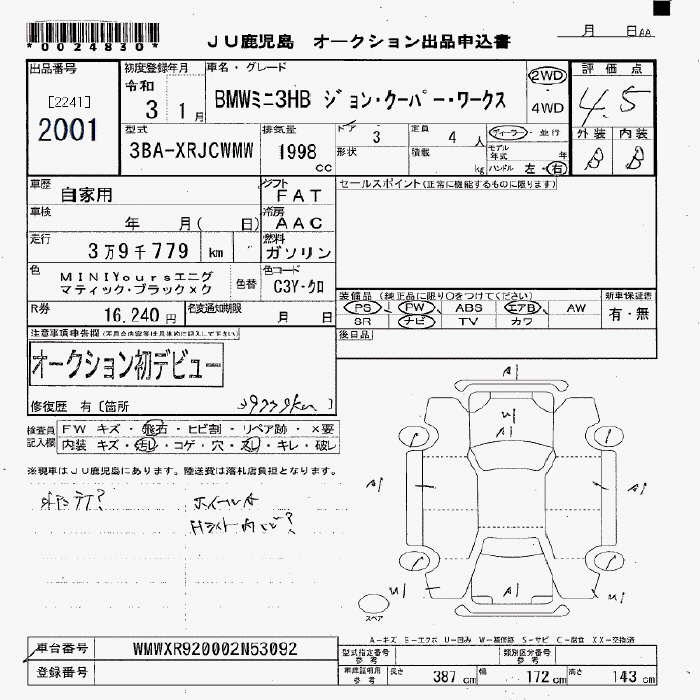 *0024830*
JU鹿児島 オークション出品申込書
月 日AA
出品番号
[2241]
2001
初度登録年月
令和
3 1月
車名・グレード
BMWミニ3HB ジョン・クーパー・ワークス
2WD
4WD
評価点
4.5
型式
3BA-XRJCWMW
排気量
1998
cc
ドア 3
形状
定員 4 人
積載 kg
ディーラー・並行
モデル年式 年
ハンドル 左・右
外装 内装
B B
車歴
自家用
シフト
FAT
セールスポイント(正常に機能するものに限ります)
車検
年 月( 日)
冷房
AAC
走行
3万9千779 km
燃料
ガソリン
色
MINIYoursエニグ
マティック・ブラックメク
色替
色コード
C3Y-クロ
R券
16,240円
色変通知期限
月 日
装備品(純正品に限り○をつけてください)
PS PW ABS エアB AW
SR ナビ TV カワ
新車保証書
有・無
後日品
注意事項申告欄
オークション初デビュー
修復歴 有〔箇所
検査員
記入欄
FW キズ・飛石・ヒビ割・リペア跡・×要
内装 キズ・汚レ・コゲ・穴・スレ・キレ・破レ
※現車はJU鹿児島にあります。陸送費は落札店負担となります。
ホイールA
A1
U1
A1
A1
A1
U1
A1
U1
スペア
A-キズ E-エクボ U-凹み W-補修跡 S-サビ C-腐食 XX-交換済
車台番号 WMWXR920002N53092
登録番号
型式指定番号
参考
類別区分番号
参考
車庫証明用
参考
長さ 387cm 幅 172cm 高さ 143cm